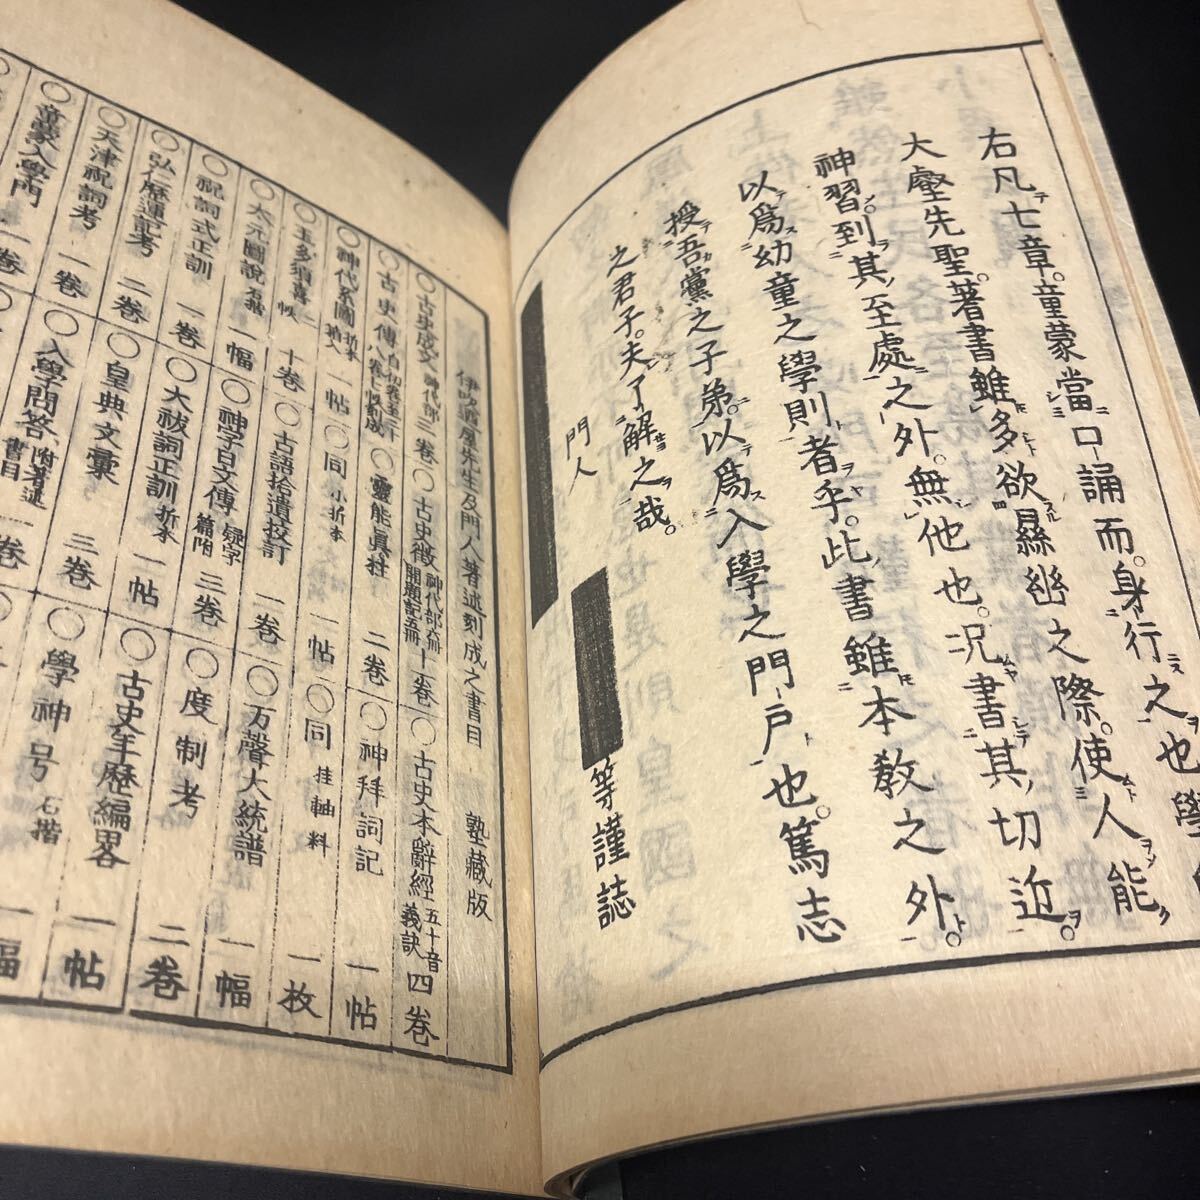 右凡七章。童蒙當口誦而。身行之也學
大壑先聖。著書雖多欲縣幽之際。使人能
神習到其至處之外。無他也。况書其切近。
以爲幼童之學則者乎。此書雖本教之外。
授吾黨之子弟。以爲入學之門戸也。篤志
之君子。夫了解之哉。
門人
等謹誌
伊吹廼屋先生及門人著述刻成之書目 塾藏版
○古史成文 神代部 三卷 ○古史徴 神代部六冊 開題記五冊 十一卷 ○古史本辭經 五十音義訣 四卷
○古史傳 二卷 ○神拜詞記 一帖
○神代系圖 折本 一帖 ○同 小折本 一帖 ○同 挂軸料 一枚
○玉多須喜 十卷 ○古語拾遺校訂 一卷 ○万聲大統譜 一幅
○太元圖說 石摺 一幅 ○神字日文傳 疑字篇附 三卷 ○度制考 二卷
○祝詞式正訓 一卷 ○大祓詞正訓 折本 一帖 ○古史年歷編畧 一帖
○弘仁歷運記考 二卷 ○皇典文彙 三卷 ○學神号 石摺 一幅
○天津祝詞考 一卷 ○入學問答 附著述書目
○童蒙入學門 一卷